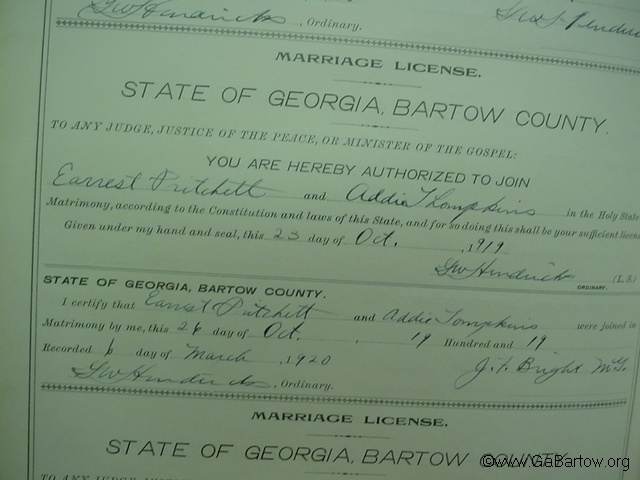 Gw Hendricks, Ordinary.
MARRIAGE LICENSE.
STATE OF GEORGIA, BARTOW COUNTY.
TO ANY JUDGE, JUSTICE OF THE PEACE, OR MINISTER OF THE GOSPEL:
YOU ARE HEREBY AUTHORIZED TO JOIN
Earrest Pritchett and Addie Thompkins in the Holy State
Matrimony, according to the Constitution and laws of this State, and for so doing this shall be your sufficient licens
Given under my hand and seal, this 23 day of Oct. , 1919
Gw Hendricks (L.S.)
ORDINARY.
STATE OF GEORGIA, BARTOW COUNTY.
I certify that Earnest Pritchett and Addie Tompkins were joined in
Matrimony by me, this 26 day of Oct. , 19 Hundred and 19
Recorded 6 day of March , 1920 J. T. Bright M.G.
Gw Hendricks, Ordinary.
MARRIAGE LICENSE.
STATE OF GEORGIA, BARTOW COUNTY.
©www.GaBartow.org